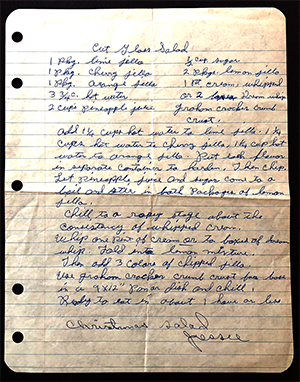 Cut Glass Salad
1 Pkg. lime jello ½ cup sugar
1 Pkg. cherry jello 2 Pkgs. lemon jello
1 Pkg. orange jello 1 Pt. cream whipped
3 ¾ c. hot water or 2 boxes Dream whip
2 cups pineapple juice Graham cracker crumb
crust.
Add 1¼ cups hot water to lime jello. 1¼
cups hot water to cherry jello, 1¼ cup hot
water to orange jello. Put each flavor
in separate container to harden. Then chip.
Let pineapple juice and sugar come to a
boil and stir in both packages of lemon
jello.
Chill to a ropey stage about the
consistency of whipped cream.
Whip one pint of cream or two boxes of dream
whip. Fold into lemon mixture.
Then add 3 colors of chipped jello.
Use graham cracker crumb crust for base
in a 9x12" pan or dish and chill.
Ready to eat in about 1 hour or less
Christmas Salad
Jessie